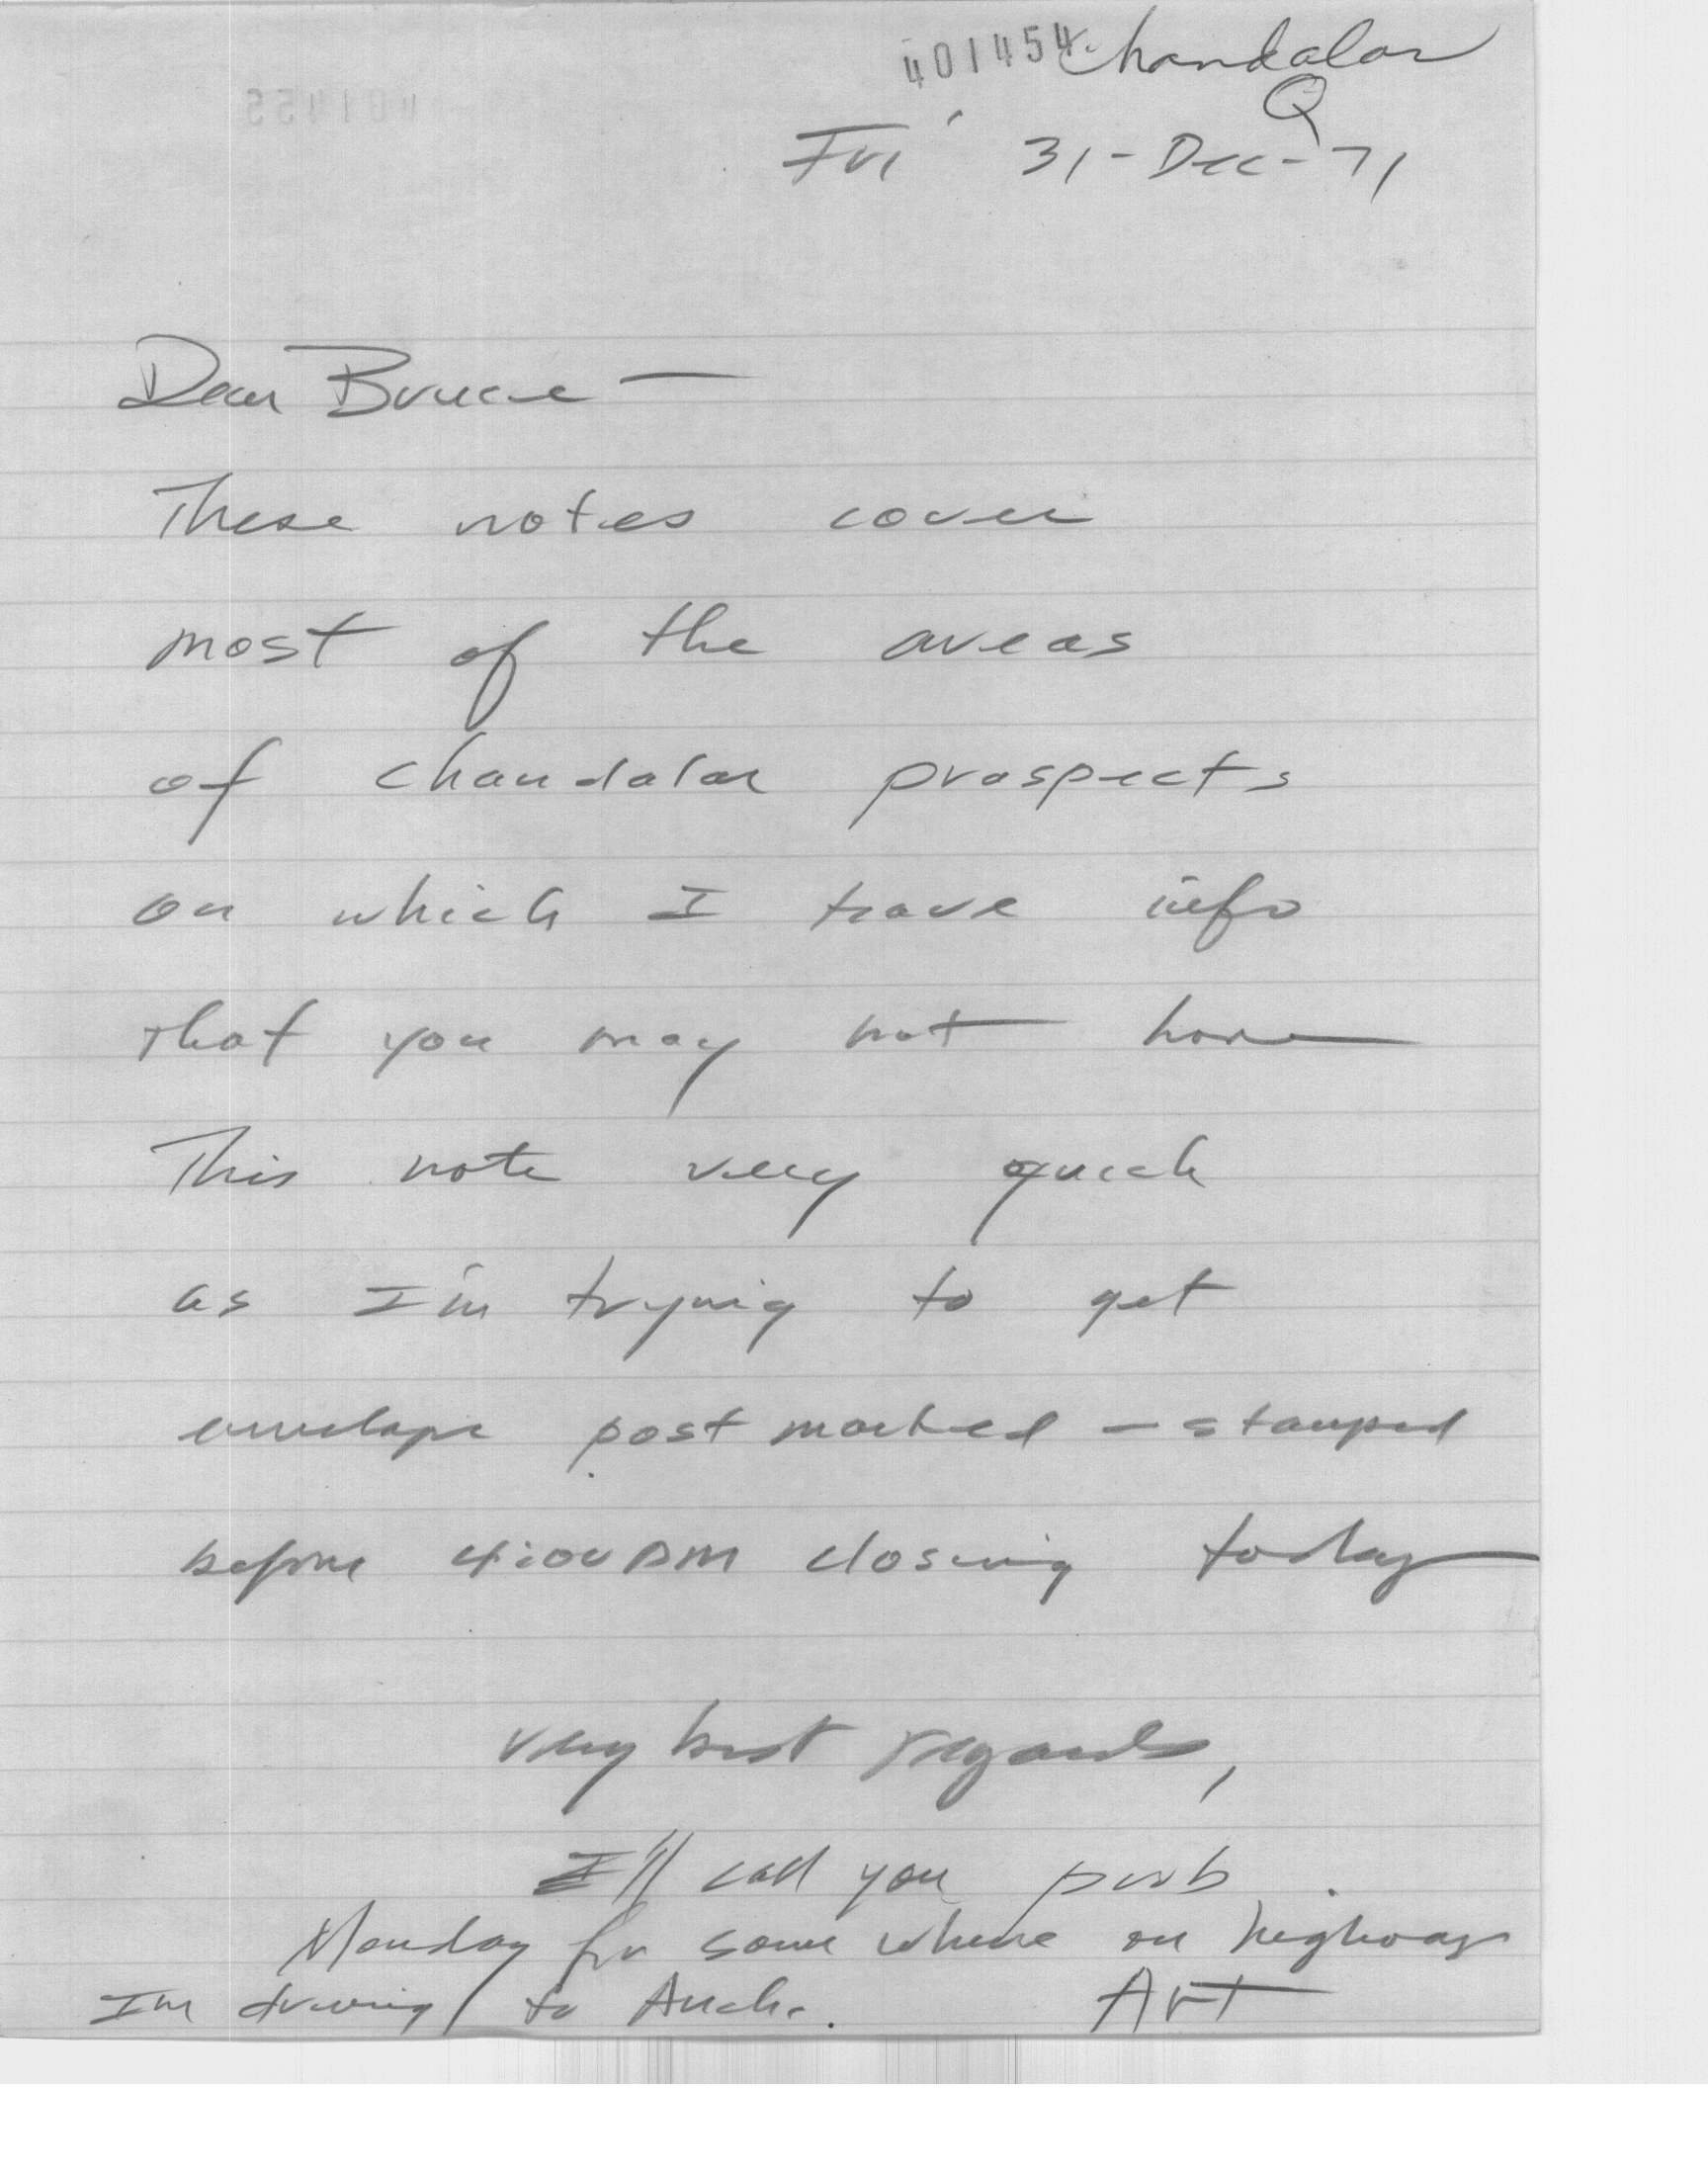 401454 Chandalar
Q
Fri 31-Dec-71
Dear Bruce —
These notes cover
most of the areas
of Chandalar prospects
on which I have info
that you may not have
This note very quick
as I'm trying to get
envelope post marked - stamped
before 4:00 PM closing today
very best regards,
I'll call you prob.
Monday fr some where on highway
I'm driving to Anch.
Art